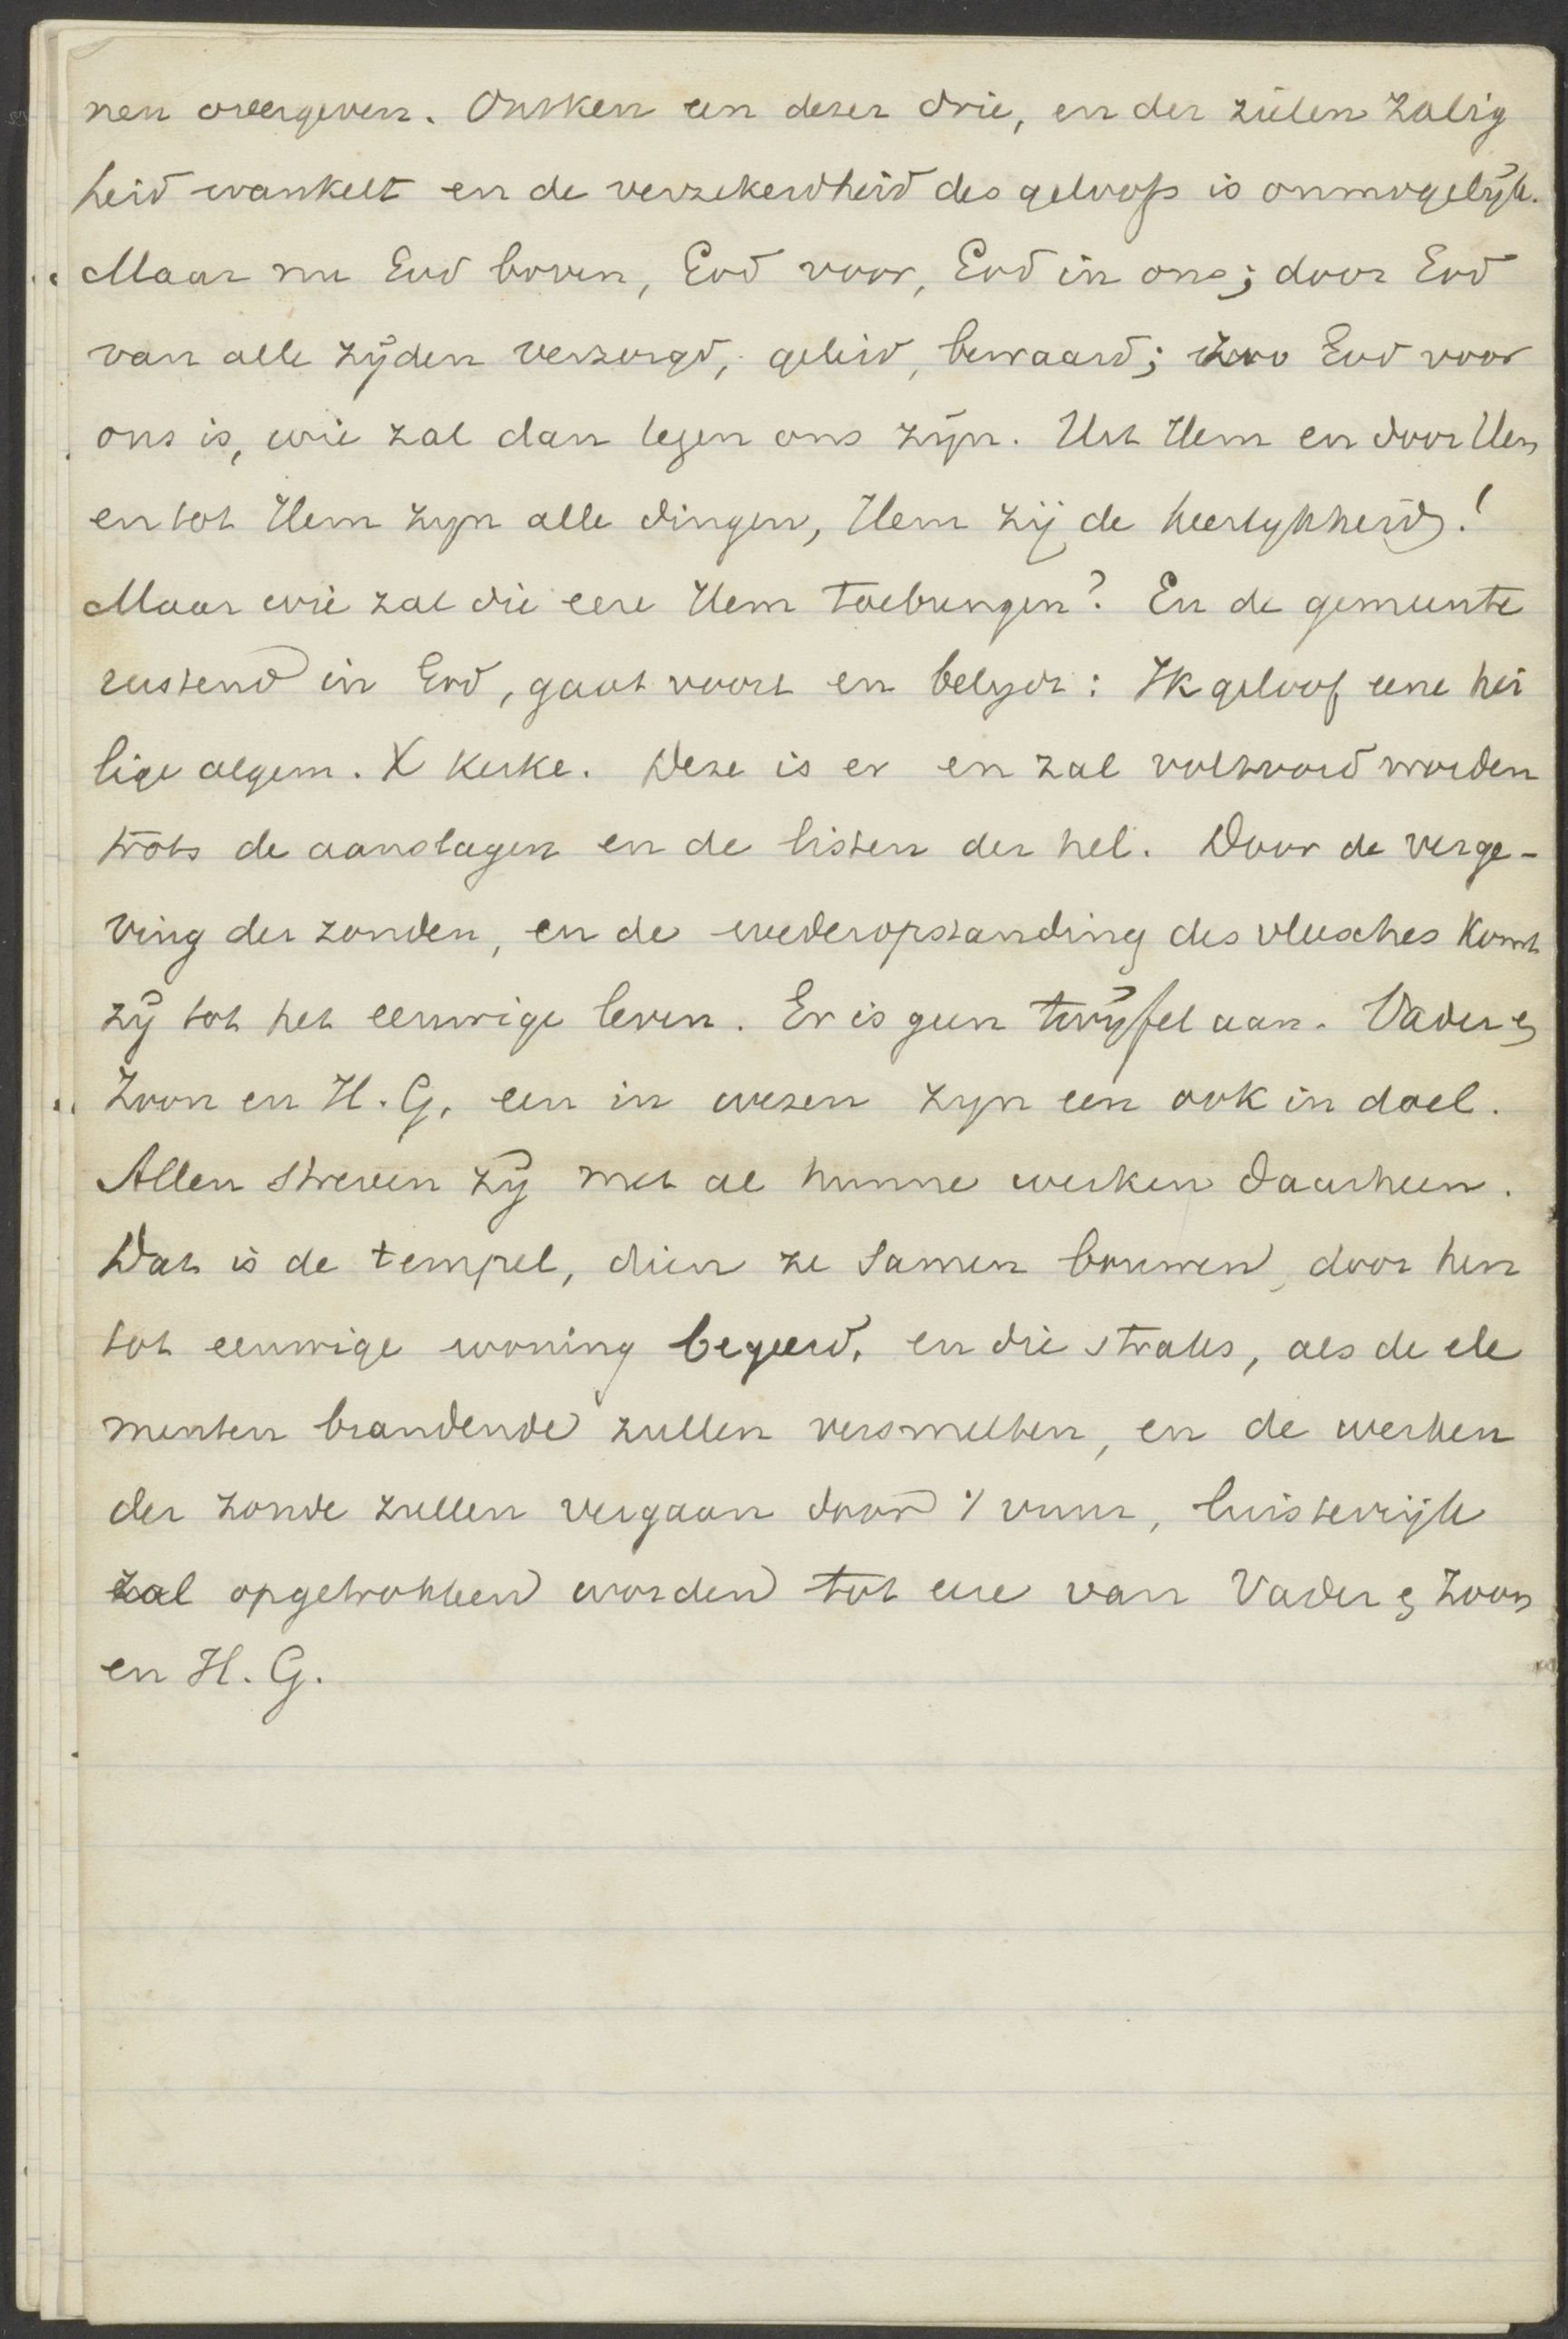 nen overgeven. Ontken een dezer drie, en der zielen zalig
heid wankelt en de verzekerdheid des geloofs is onmogelijk.
Maar nu God boven, God voor, God in ons; door God
van alle zijden verzorgd, geleid, bewaard; zoo God voor
ons is, wie zal dan tegen ons zijn. Uit Hem en door Hem
en tot Hem zijn alle dingen, Hem zij de heerlijkheid!
Maar wie zal die eere Hem toebrengen? En de gemeente
rustend in God, gaat voort en belijdt: Ik geloof eene hei
lige algem. X kerke. Deze is er en zal voltooid worden
trots de aanslagen en de listen der hel. Door de verge-
ving der zonden, en de wederopstanding des vleesches komt
zij tot het eeuwige leven. Er is geen twijfel aan. Vader &
Zoon en H. G. een in wezen zijn een ook in doel.
Allen streven zij met al hunne werken daarheen.
Dat is de tempel, dien ze samen bouwen, door hen
tot eeuwige woning begeerd, en die straks, als de ele
menten brandende zullen versmelten, en de werken
der zonde zullen vergaan door 't vuur, luisterrijk
zal opgetrokken worden tot eere van Vader & Zoon
en H. G.